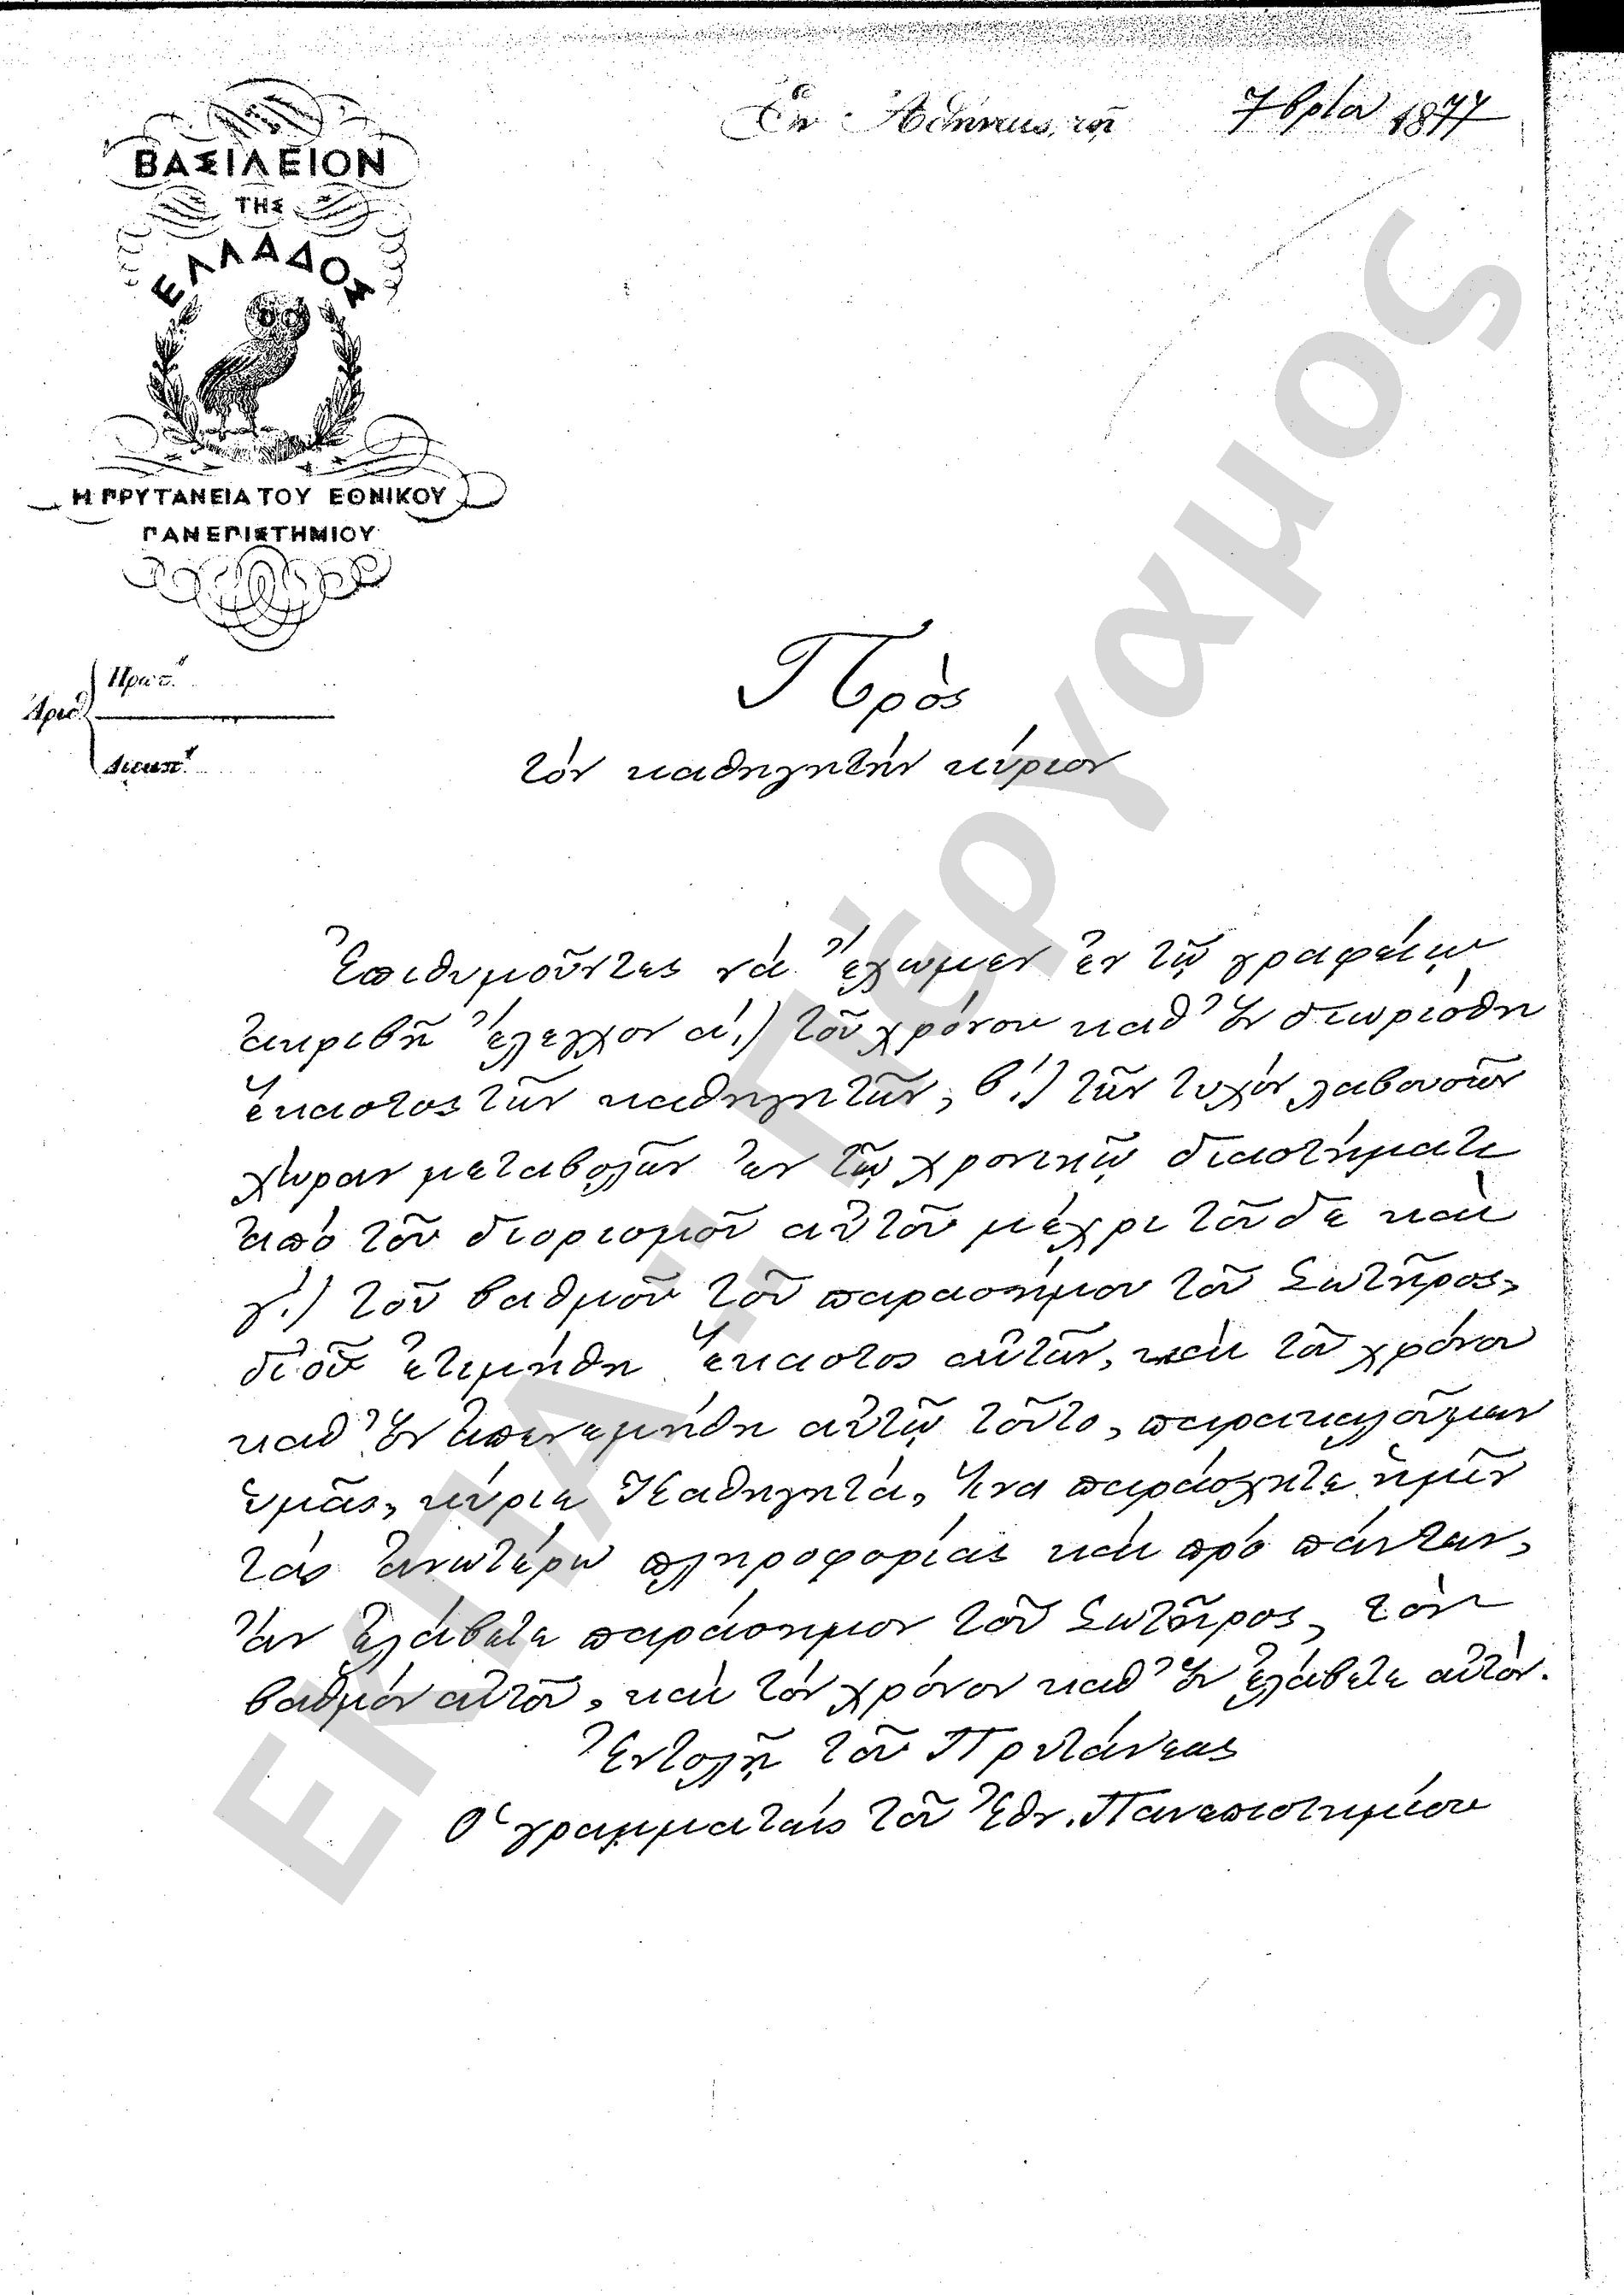 Ἐν Ἀθήναις, τῇ 7βρίου 1877
ΒΑΣΙΛΕΙΟΝ
ΤΗΣ
ΕΛΛΑΔΟΣ
Η ΠΡΥΤΑΝΕΙΑ ΤΟΥ ΕΘΝΙΚΟΥ
ΠΑΝΕΠΙΣΤΗΜΙΟΥ
Πρωτ.
Ἀριθ.
Διεκπ.
Πρὸς
τὸν καθηγητὴν κύριον
Ἐπιθυμοῦντες νὰ ἔχωμεν ἐν τῷ γραφείῳ
ἀκριβῆ ἔλεγχον α΄.) τοῦ χρόνου καθ' ὃν διωρίσθη
ἕκαστος τῶν καθηγητῶν, β΄.) τῶν τυχὸν λαβουσῶν
χώραν μεταβολῶν ἐν τῷ χρονικῷ διαστήματι
ἀπὸ τοῦ διορισμοῦ αὐτοῦ μέχρι τοῦδε καὶ
γ΄.) τοῦ βαθμοῦ τοῦ παρασήμου τοῦ Σωτῆρος,
δι' οὗ ἐτιμήθη ἕκαστος αὐτῶν, καὶ τοῦ χρόνου
καθ' ὃν ἀπενεμήθη αὐτῷ τοῦτο, παρακαλοῦμεν
ὑμᾶς, κύριε Καθηγητά, ἵνα παράσχητε ἡμῖν
τὰς ἀνωτέρω πληροφορίας καὶ πρὸ πάντων,
ἂν ἐλάβετε παράσημον τοῦ Σωτῆρος, τὸν
βαθμὸν αὐτοῦ, καὶ τὸν χρόνον καθ' ὃν ἐλάβετε αὐτόν.
Ἐντολῇ τοῦ Πρυτάνεως
Ὁ γραμματεὺς τοῦ Ἐθν. Πανεπιστημίου
ΕΚΠΑ - Πέργαμος